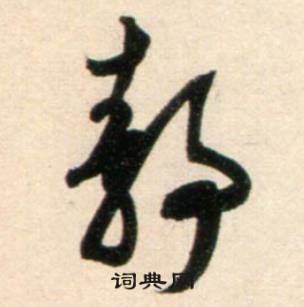 静
词典网